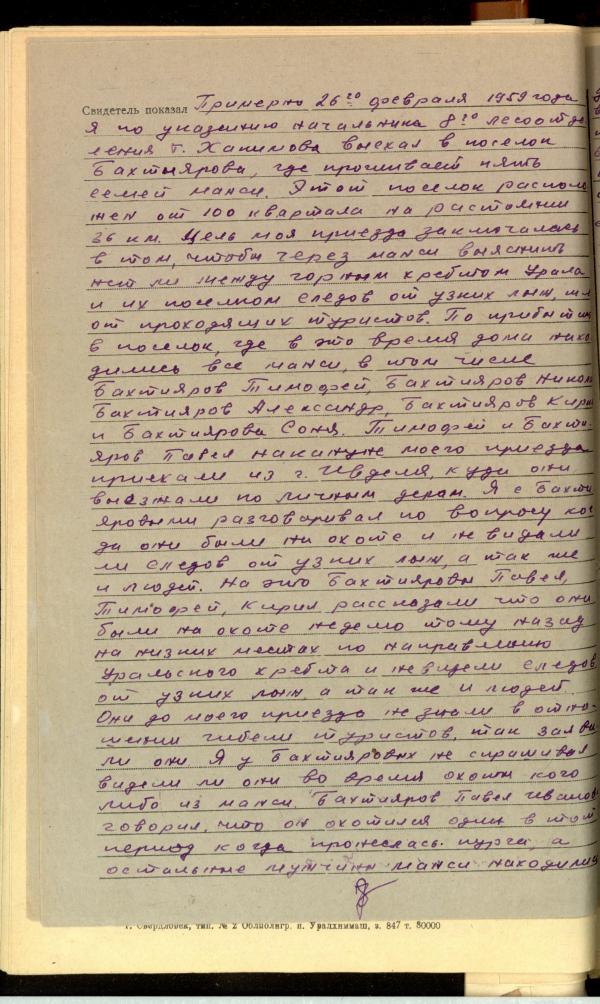 Свидетель показал Примерно 26го февраля 1959 года
я по указанию начальника 8го лесоотде
ления т. Хакимова выехал в поселок
Бахтыярова, где проживает пять
семей манси. Этот поселок распол
жен от 100 квартала на растоянии
36 км. Цель моя приезда заключалась
в том, чтобы через манси выяснить
нет ли между горным хребтом Урала
и их поселком следов от узких лыж, или
от проходящих туристов. По прибытии
в поселок, где в это время дома нахо
дились все манси, в том числе
Бахтияров Тимофей, Бахтияров Никол
Бахтияров Александр, Бахтияров Кирил
и Бахтиярова Соня. Тимофей и Бахти-
яров Павел накануне моего приезда
приехали из г. Ивделя, куда они
выезжали по личным делам. Я с Бахти
яровыми разговаривал по вопросу ког
да они были на охоте и не видали
ли следов от узких лыж, а так же
и людей. На это Бахтияровы Павел,
Тимофей, Кирил рассказали что они
были на охоте неделю тому назад
на низких местах по направлению
Уральского хребта и не видели следов
от узких лыж а так же и людей.
Они до моего приезда не знали в отно-
шении гибели туристов, так заяви
ли они. Я у Бахтияровых не спрашивал
видели ли они во время охоты кого
либо из манси. Бахтияров Павел Иванов
говорил, что он охотился один в том
период когда пронеслась пурга, а
остальные мужчины манси находились
г. Свердловск, тип. № 2 Облполигр. п. Уралхиммаш, з. 847 т. 80000